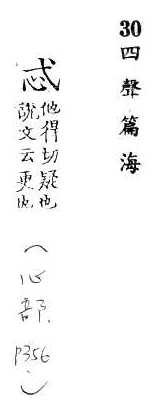 30四聲篇海
忒
他得切疑也
說文云更也
(心部P356)